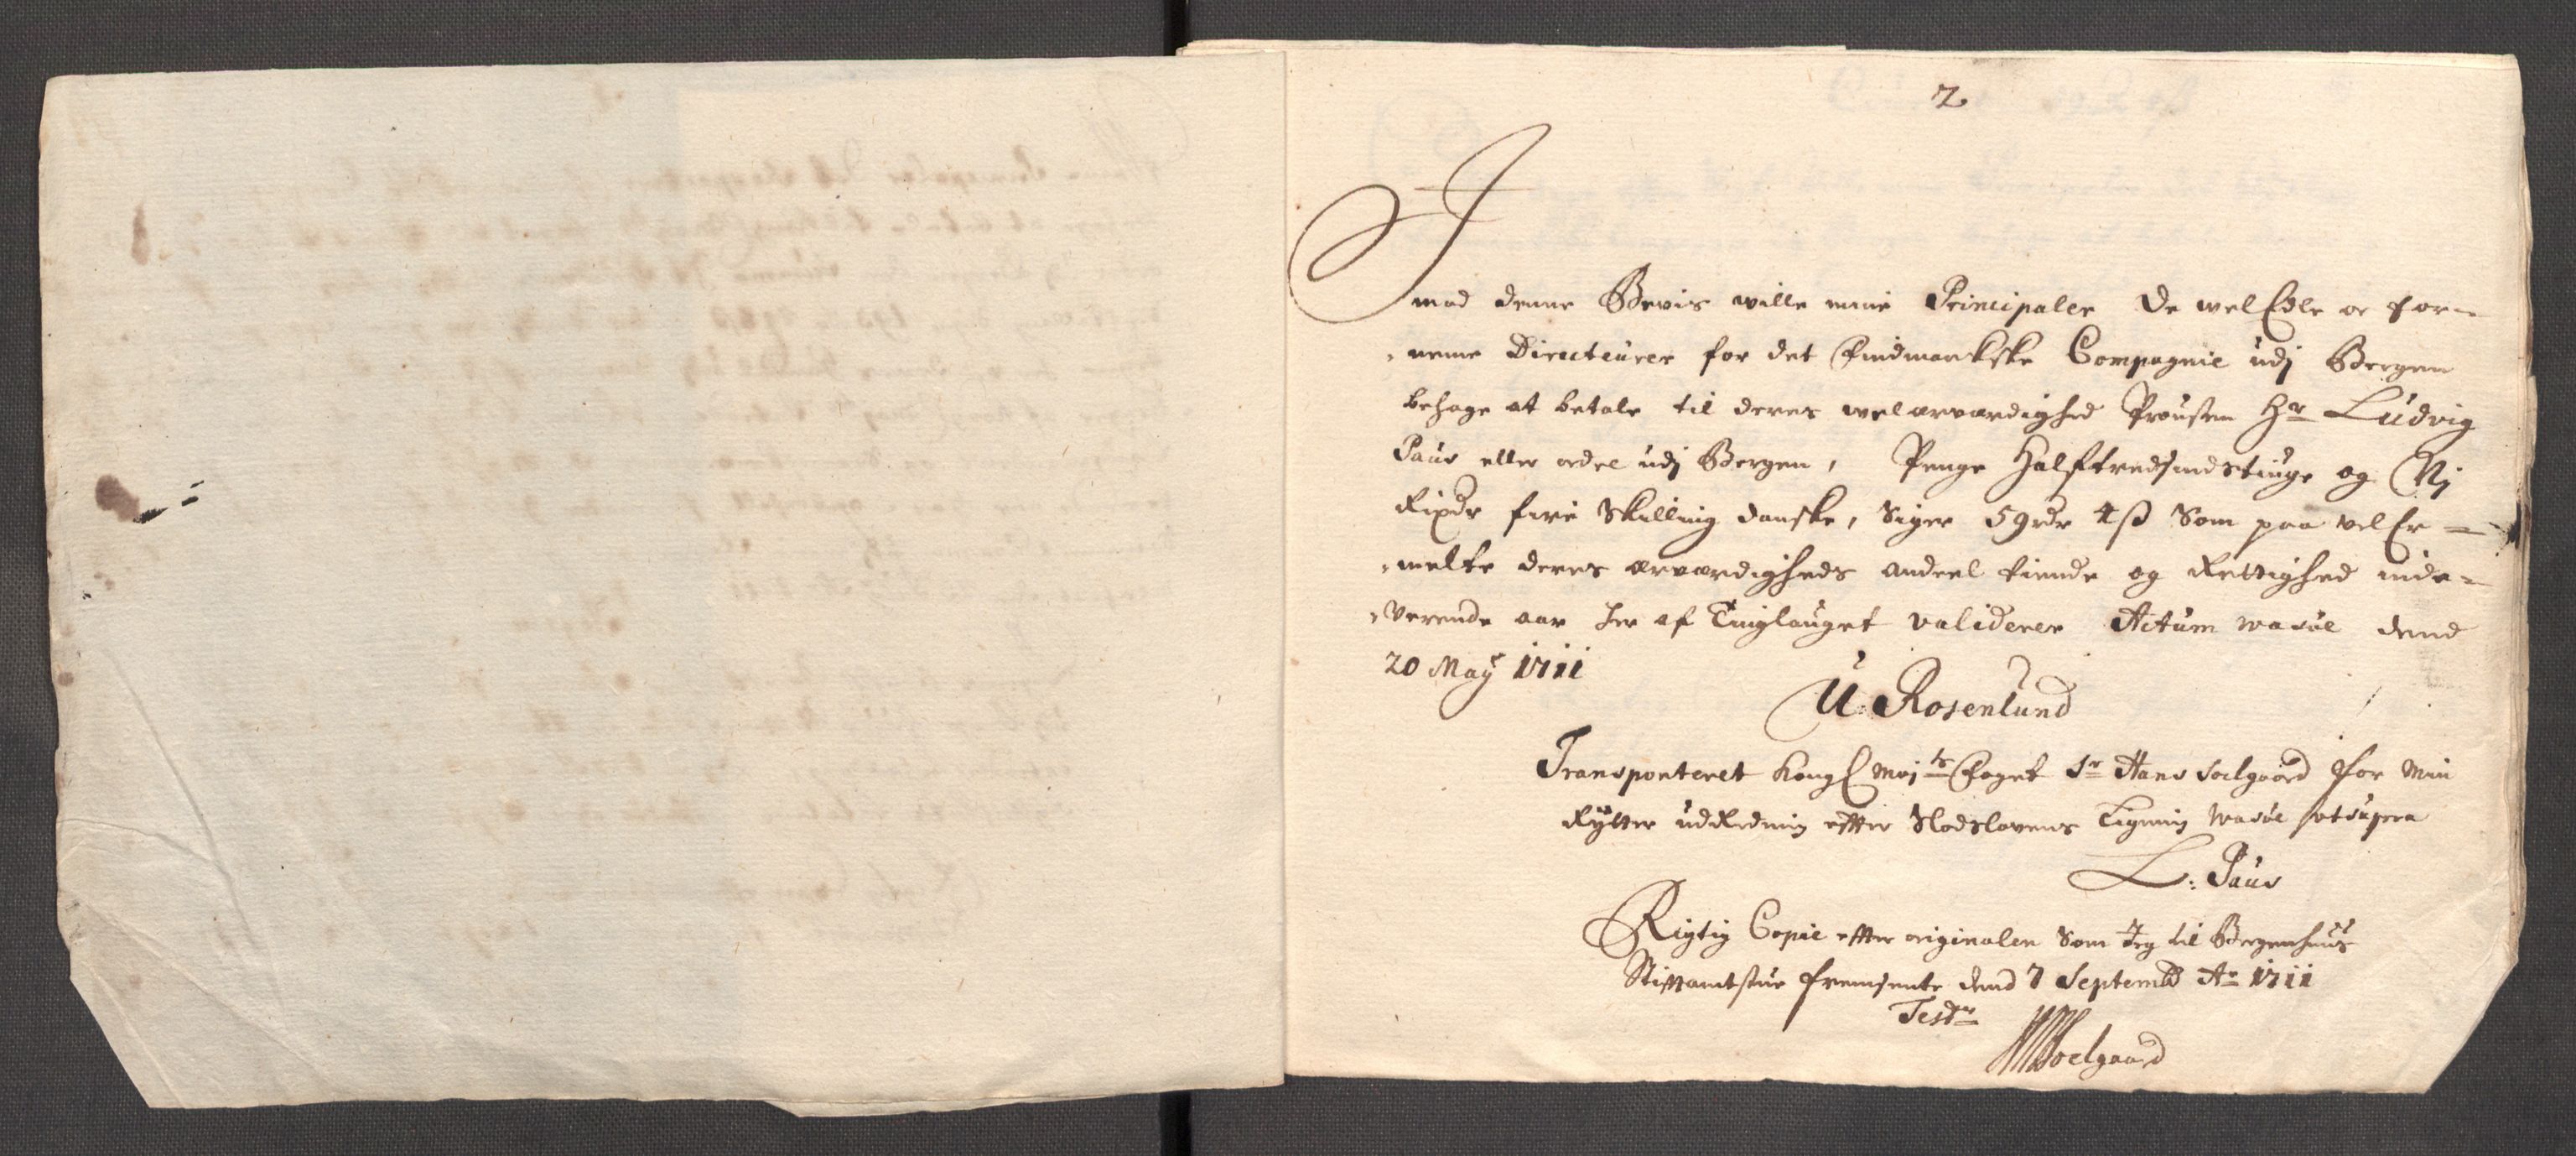 2
Imod denne Bevis wille mine Principaler De welEdle oc for=
=neme Directeurer for det Findmarkske Compagnie udj Bergen
behage at betale til deres welærværdighed Prousten Hr Ludvig
Paus eller ordre udj Bergen, Penge Halftredsindstiuge og Nj
Rixdr fire Skilling danske, Siger 59rdr 4ß Som paa velEr=
=melte deres ærværdigheds andeel tiende og Rettighed inde=
=værende aar her af Tinglauget validerer Actum wasöe dend
20 May 1711
U: Rosenlund
Transporteret Kongl Maj:ts Foget Sr Hans Soelgaard for Min
Rytter udRedning efter Slodslovens Ligning Wasöe utsupra
L: Paus
Rigtig Copie efter originalen Som Jeg til Bergenhuus
Stiftamtstue fremsente dend 7 Septemb Ao 1711
Test
HSoelgaard